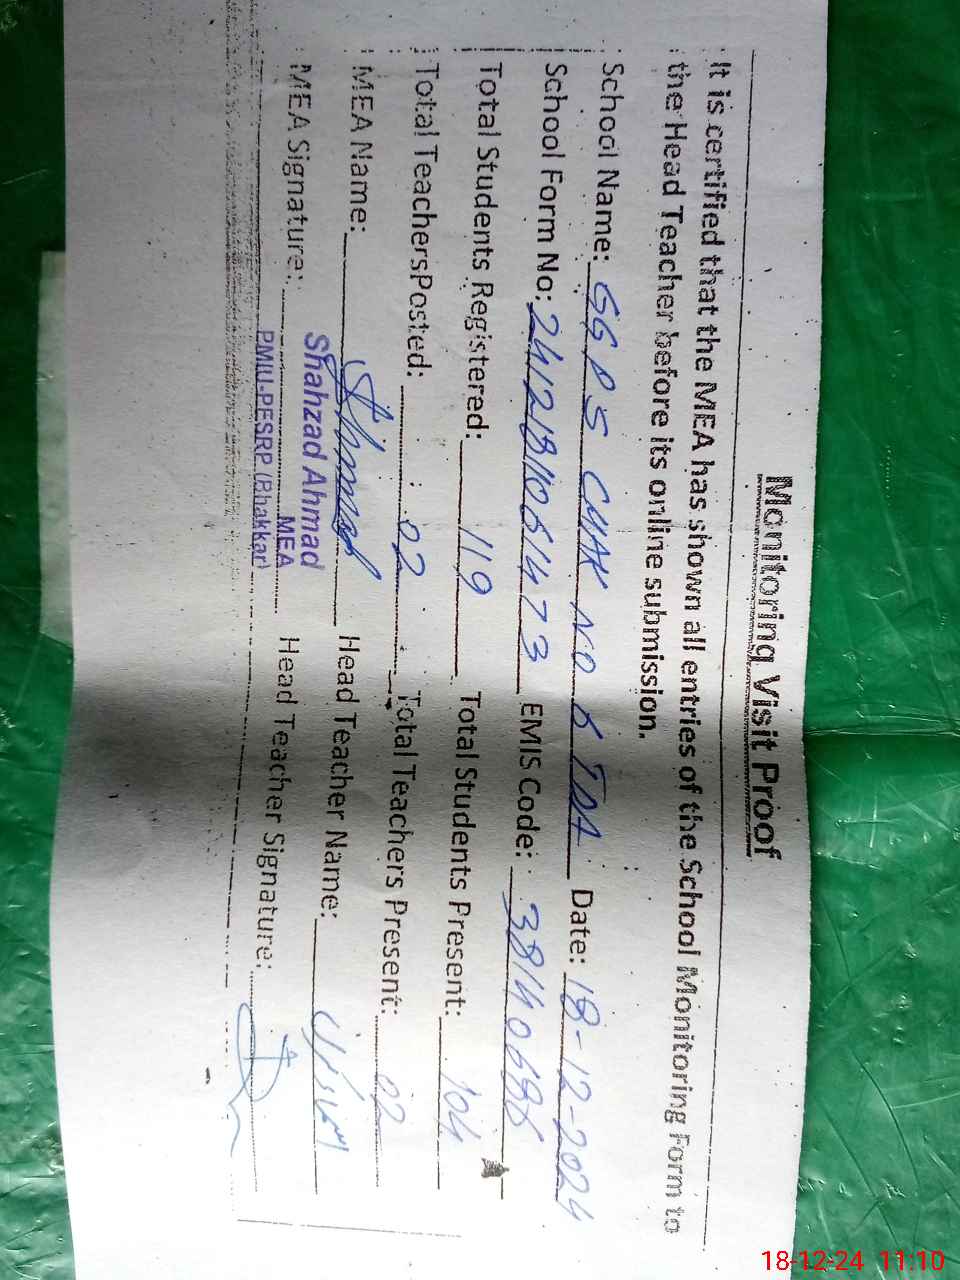 Monitoring Visit Proof
It is certified that the MEA has shown all entries of the School Monitoring Form to
the Head Teacher before its online submission.
School Name: GGPS CHAK NO 6 TDA Date: 18-12-2024
School Form No: EMIS Code:
Total Students Registered: 119 Total Students Present: 104
Total TeachersPosted: 02 Total Teachers Present: 02
MEA Name: Ahmad Head Teacher Name:
MEA Signature: Head Teacher Signature:
Shahzad Ahmad
MEA
PMIU-PESRP (Bhakkar)
18-12-24 11:10